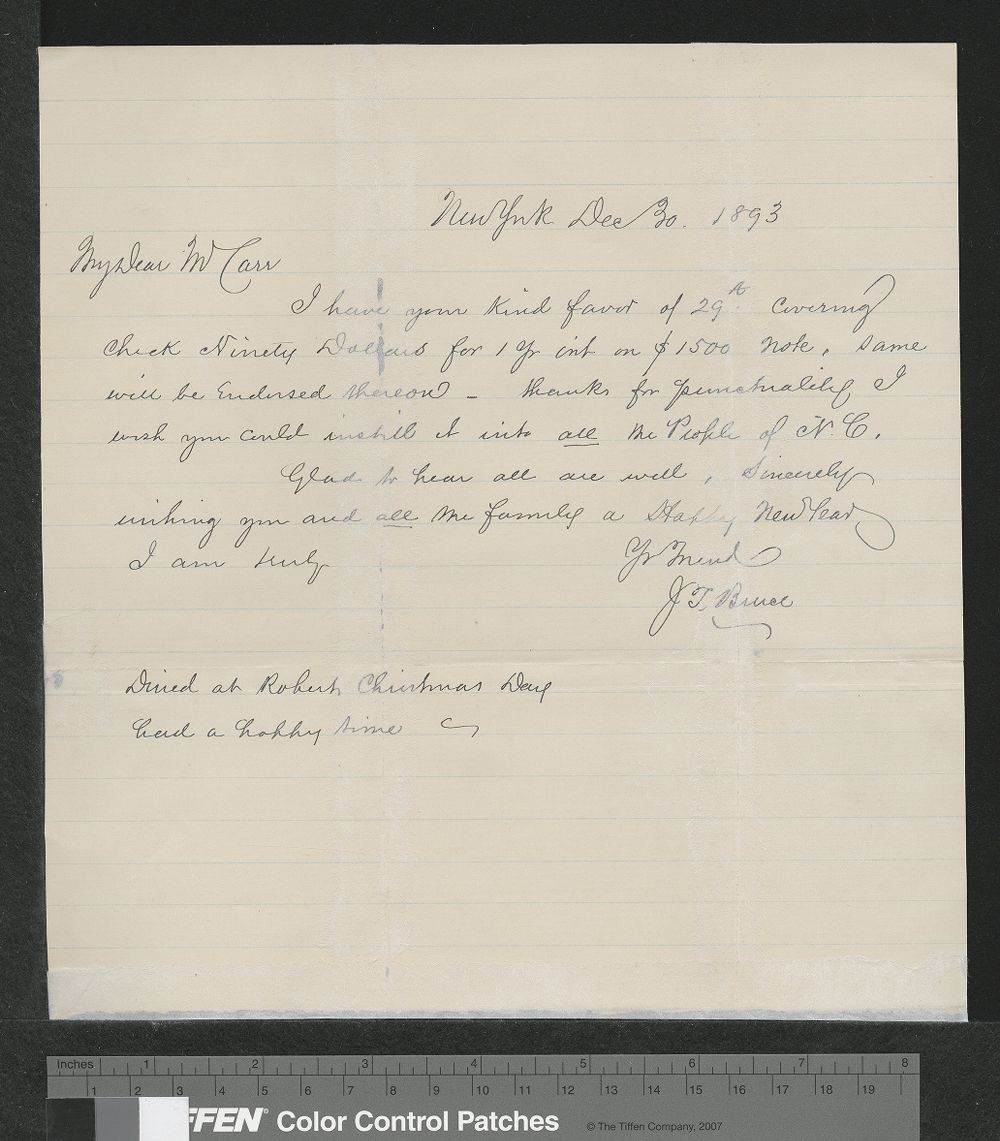 New York Dec 30. 1893
My Dear Mr Carr
I have your kind favor of 29th covering
check Ninety Dollars for 1 Yr int on $1500 Note, same
will be Endorsed thereon - thanks for punctuality I
wish you could instill it into all the People of N.C.
Glad to hear all are well, Sincerely
wishing you and all the family a Happy New Year
I am truly
Yr Friend
J T. Bruce
Dined at Roberts Christmas Day
had a happy time
Inches 1 2 3 4 5 6 7 8
1 2 3 4 5 6 7 8 9 10 11 12 13 14 15 16 17 18 19
FFEN® Color Control Patches © The Tiffen Company, 2007